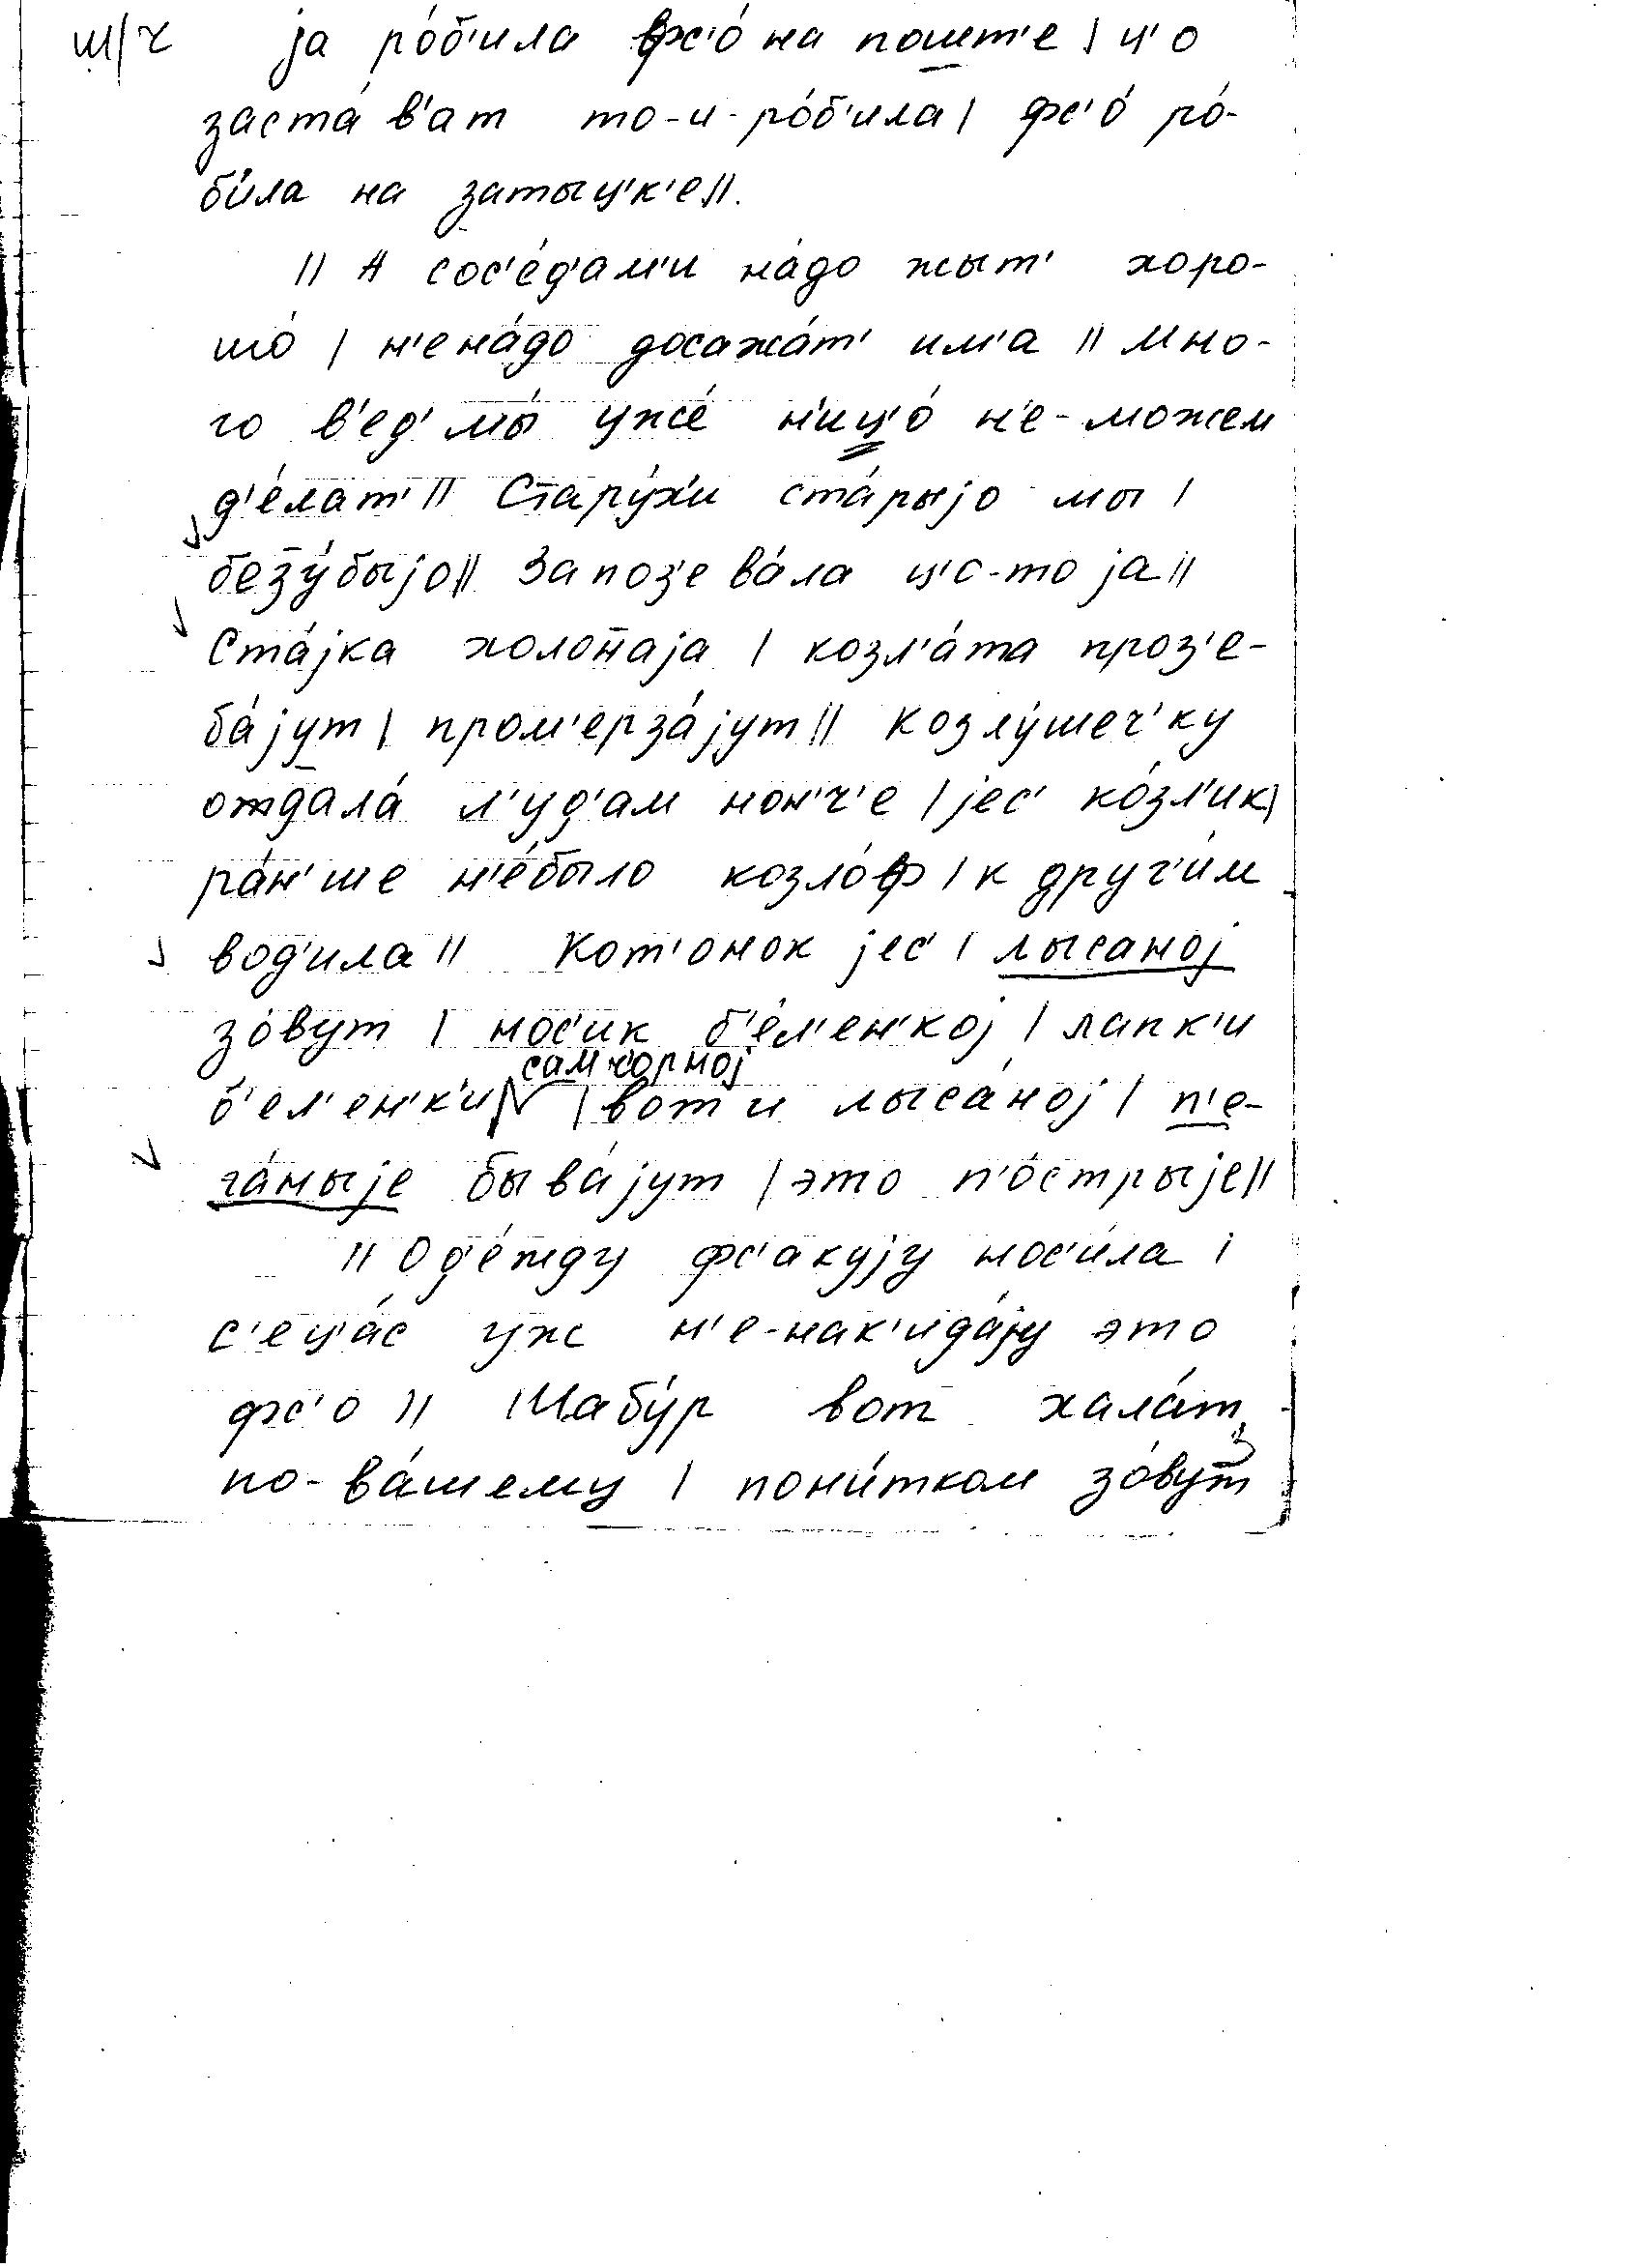 ш/ч ја ро́б'ила фс'о́ на пошт'е | ц'о
заста́в'ат то-и-ро́б'ила | фс'о́ ро́-
б'ила на затыц'к'е ||.
|| А сос'е́д'ам'и на́до жыт' хоро-
шо́ | н'ена́до досажа́т' им'а || Мно-
го в'ед' мы́ уже́ н'иц'о́ н'е-можем
д'е́лат' || Стару́х'и ста́рыјо мы |
безу́быјо || Запоз'ева́ла ц'о-то ја ||
Ста́јка холо̄наја | козл'а́та проз'е-
ба́јут | пром'ерза́јут || Козлу́шеч'ку
отдала́ л'уд'ам нон'ч'е | јес' ко́зл'ик |
ра́н'ше н'е́было козло́ф | к друг'и́м
вод'ила || Кот'онок јес' | лысаној
зо́вут | нос'ик б'е́л'ен'кој | лапк'и
сам ч'орној
б'ел'ен'к'и | вот и лыса́ној | п'е-
га́ныје быва́јут | это п'о́стрыје ||
|| Од'е́жду фс'акују нос'и́ла |
с'еца́с уж н'е-нак'ида́ју это
фс'о || Шабу́р вот хала́т
по-ва́шему | пони́тком зо́вут